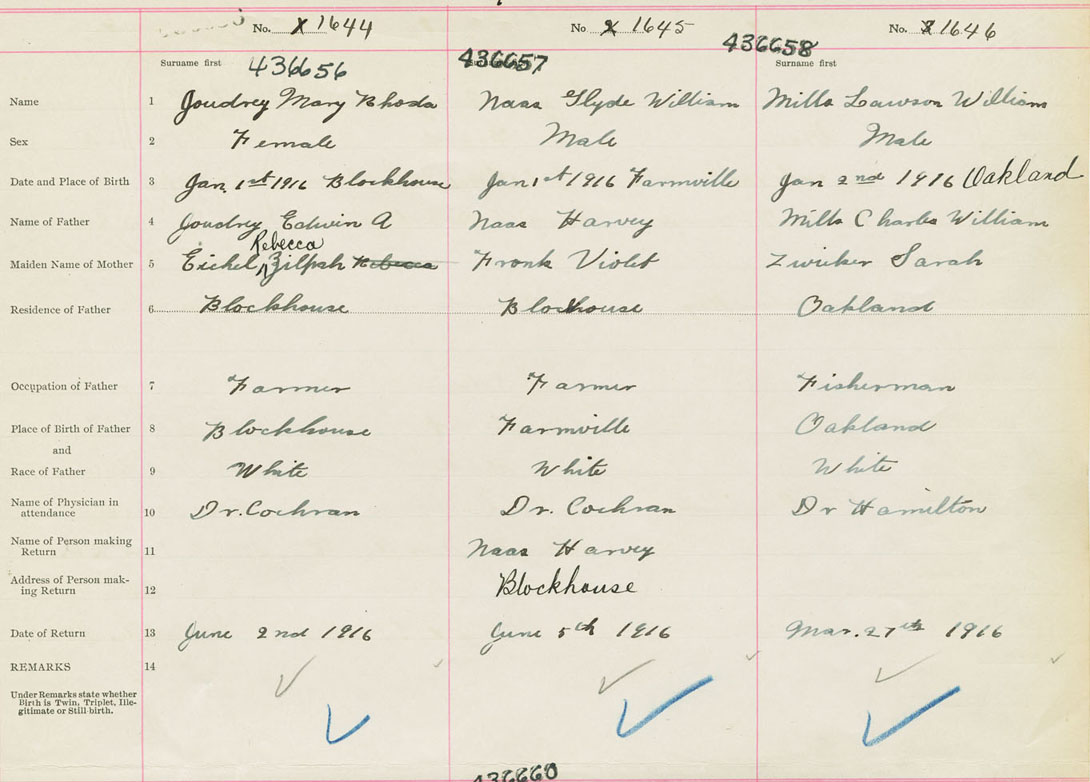 No. X 1644 No X 1645 No. X 1646
Surname first 436656 436657 436658 Surname first
Name 1 Joudrey Mary Rhoda Naas Glyde William Mills Lawson William
Sex 2 Female Male Male
Date and Place of Birth 3 Jan. 1st 1916 Blockhouse Jan 1st 1916 Farmville Jan 2nd 1916 Oakland
Name of Father 4 Joudrey Edwin A Naas Harvey Mills Charles William
Rebecca
Maiden Name of Mother 5 Eichel Zilpah Rebecca Fronk Violet Zwicker Sarah
Residence of Father 6 Blockhouse Blockhouse Oakland
Occupation of Father 7 Farmer Farmer Fisherman
Place of Birth of Father 8 Blockhouse Farmville Oakland
and
Race of Father 9 White White White
Name of Physician in
attendance 10 Dr. Cochran Dr. Cochran Dr Hamilton
Name of Person making
Return 11 Naas Harvey
Address of Person mak-
ing Return 12 Blockhouse
Date of Return 13 June 2nd 1916 June 5th 1916 Mar. 27th 1916
REMARKS 14
Under Remarks state whether
Birth is Twin, Triplet, Ille-
gitimate or Still-birth.
436660